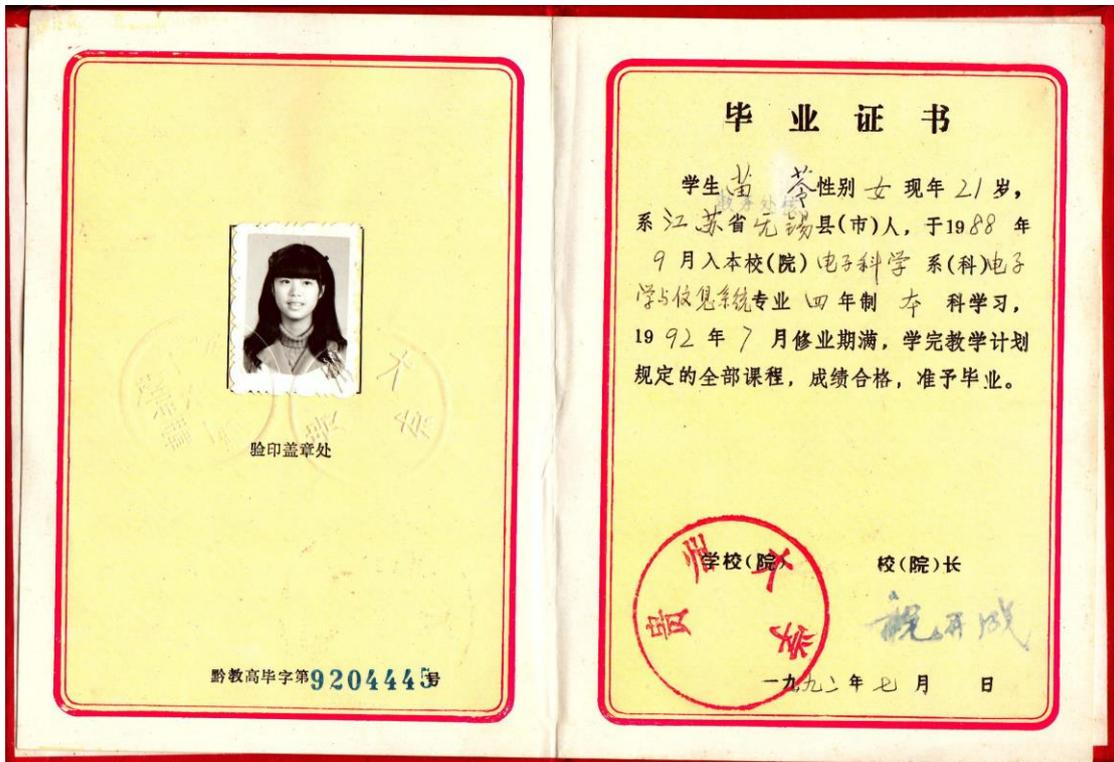 验印盖章处
黔教高毕字第9204445号
毕业证书
学生苗苓性别女现年21岁，
系江苏省无锡县(市)人，于1988年
9月入本校(院)电子科学系(科)电子
学与信息系统专业四年制本科学习，
1992年7月修业期满，学完教学计划
规定的全部课程，成绩合格，准予毕业。
贵州大学
学校(院)
校(院)长
一九九二年七月 日